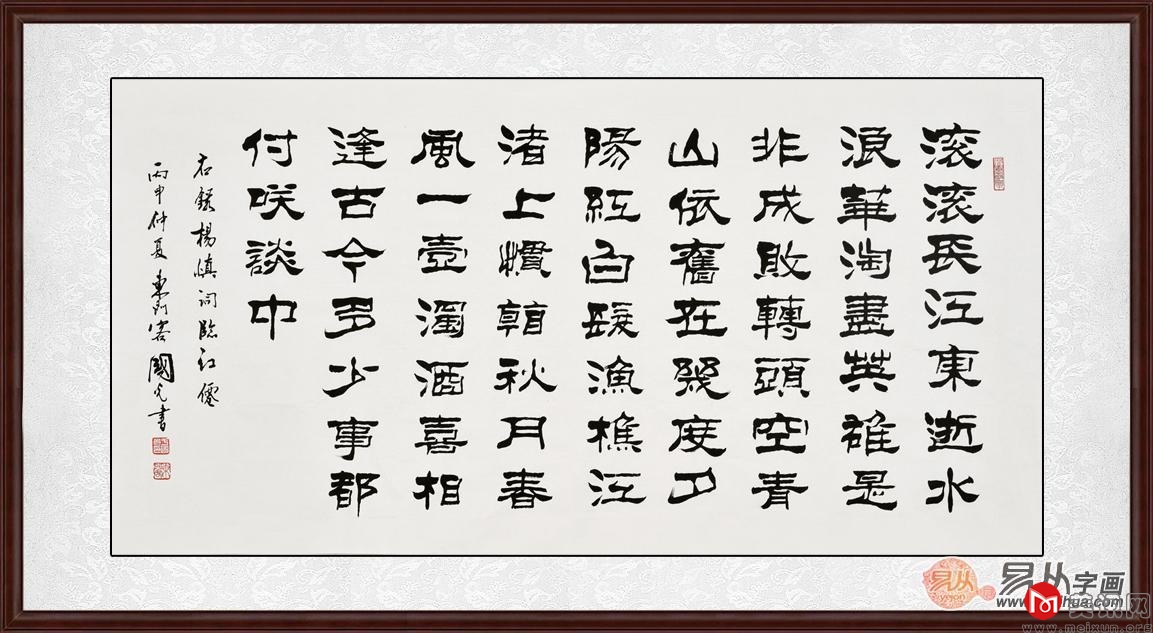 滚滚長江東逝水
浪華淘盡英雄是
非成敗轉頭空青
山依舊在幾度夕
陽紅白髮漁樵江
渚上慣看秋月春
風一壺濁酒喜相
逢古今多少事都
付咲談中
右錄楊慎詞臨江僊
丙申仲夏 東 客 國光書
易从
易从字画
www.meixun.org